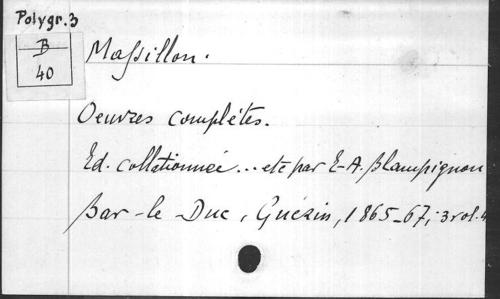 Polygr. 3
B
40
Massillon.
Oeuvres complètes.
Ed. collationnée ... etc par E-A. Blampignon
Bar-le-Duc, Guérin, 1865-67; 3 vol. 4